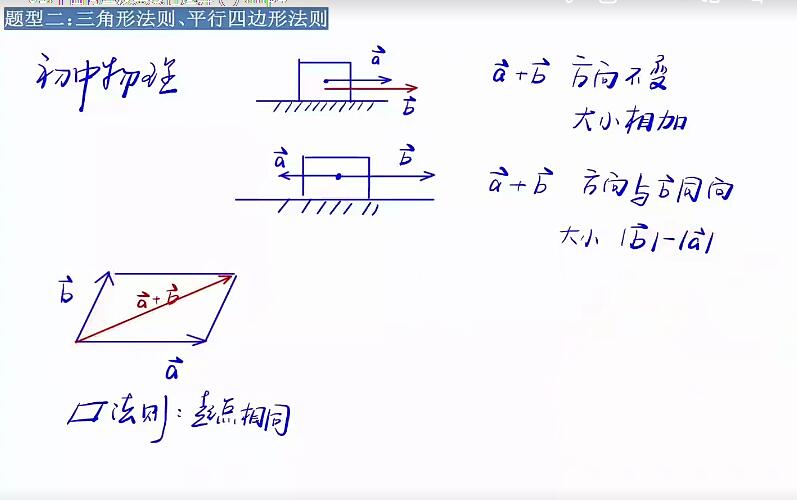 题型二:三角形法则、平行四边形法则
初中物理
a⃗
b⃗
a⃗+b⃗ 方向不变
大小相加
a⃗
b⃗
a⃗+b⃗ 方向与b⃗同向
大小 |b⃗|-|a⃗|
b⃗
a⃗+b⃗
a⃗
▱法则:起点相同